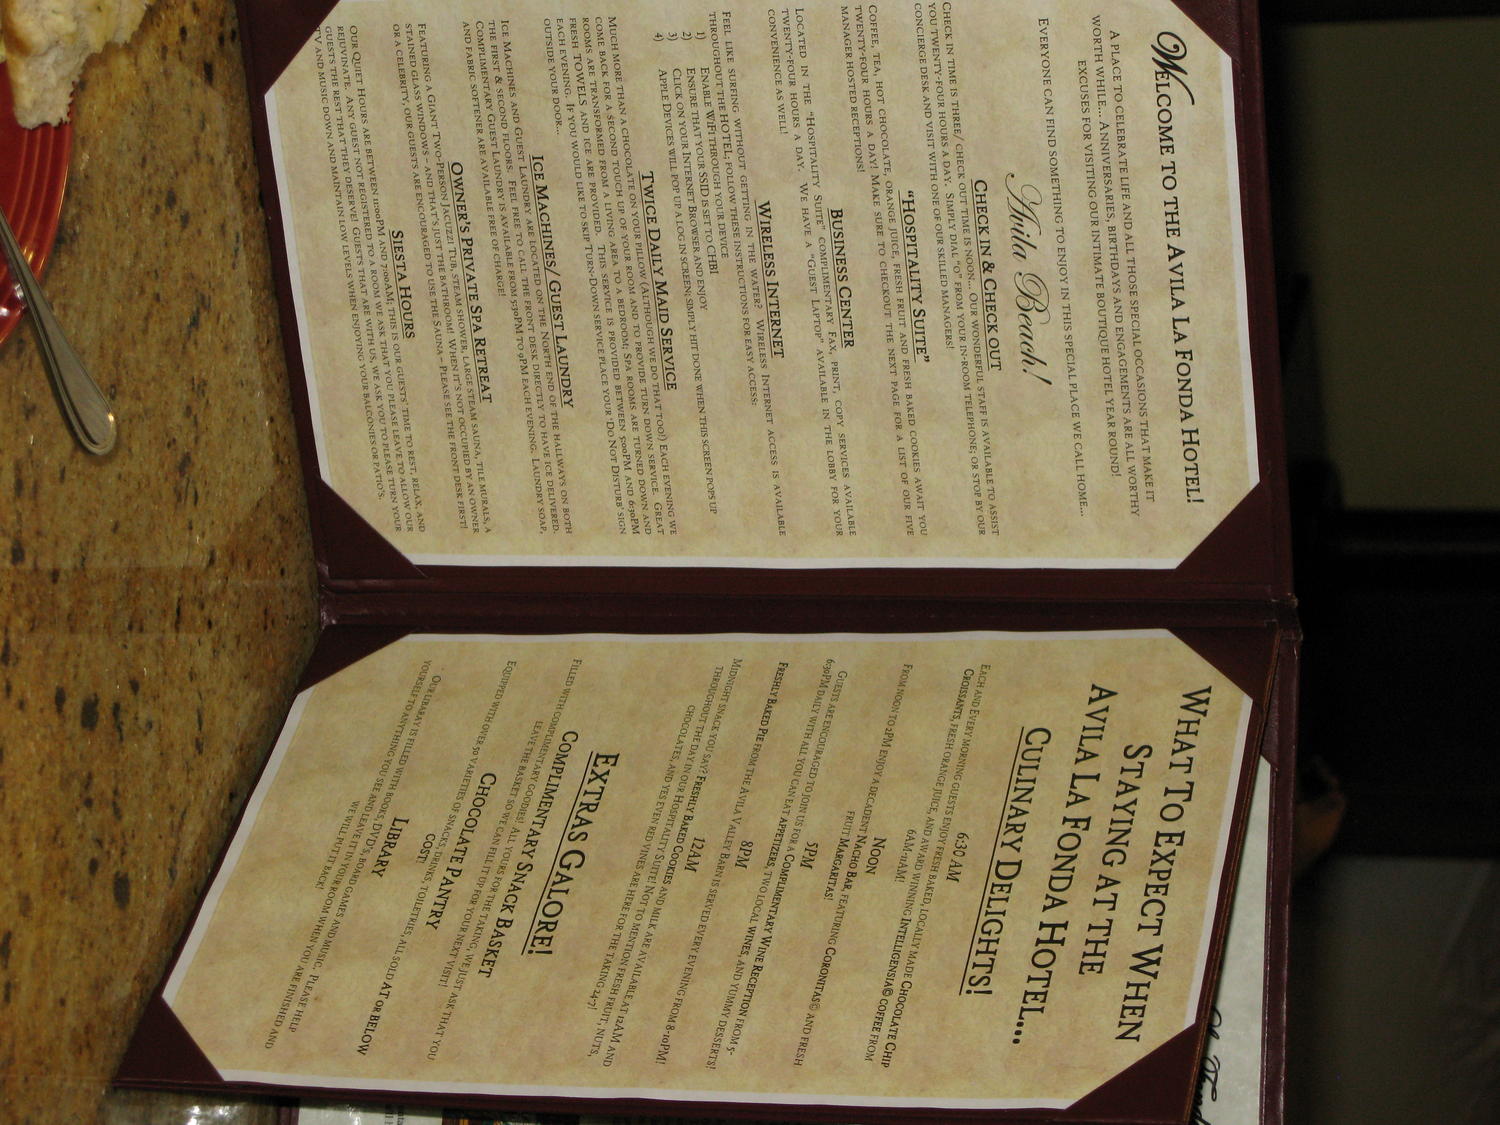 Welcome to the Avila La Fonda Hotel!
A place to celebrate life and all those special occasions that make it
worth while... Anniversaries, birthdays and engagements are all worthy
excuses for visiting our intimate boutique hotel year round!
Everyone can find something to enjoy in this special place we call home...
Avila Beach!
Check in & Check out
Check in time is three/ check out time is noon... Our wonderful staff is available to assist
you twenty-four hours a day. Simply dial "0" from your in-room telephone; or stop by our
concierge desk and visit with one of our skilled managers!
"Hospitality Suite"
Coffee, tea, hot chocolate, orange juice, fresh fruit and fresh baked cookies await you
twenty-four hours a day! Make sure to checkout the next page for a list of our five
manager hosted receptions!
Business Center
Located in the "Hospitality Suite" complimentary fax, print, copy services available
twenty-four hours a day. We have a "Guest Laptop" available in the lobby for your
convenience as well!
Wireless Internet
Feel like surfing without getting in the water? Wireless Internet access is available
throughout the hotel; follow these instructions for easy access:
1) Enable WiFi through your device
2) Ensure that your SSID is set to CHBI
3) Click on your Internet Browser and enjoy
4) Apple Devices will pop up a log in screen; simply hit done when this screen pops up
Twice Daily Maid Service
Much more than a chocolate on your pillow (although we do that too!) Each evening we
come back for a second touch up of your room and to provide turn down service. Great
rooms are transformed from a living area to a bedroom; Spa rooms are turned down and
fresh towels and ice are provided. This service is provided between 5:00PM and 6:30PM
each evening. If you would like to skip Turn-Down service place your 'Do Not Disturb' sign
outside your door...
Ice Machines/ Guest Laundry
Ice Machines and Guest Laundry are located on the North end of the hallways on both
the first & second floors. Feel free to call the front desk directly to have ice delivered.
Complimentary Guest Laundry is available from 5:30PM to 9PM each evening. Laundry soap,
and fabric softener are available free of charge!
Owner's Private Spa Retreat
Featuring a Giant Two-Person Jacuzzi Tub, steam shower, large steam sauna, tile murals, a
stained glass windows – and that's just the bathroom! When it's not occupied by an owner
or a celebrity, our guests are encouraged to use the Sauna – Please see the front desk first!
Siesta Hours
Our Quiet Hours are between 11:00PM and 7:00AM; this is our guests' time to rest, relax, and
rejuvinate. Any guest not registered to a room we ask that you please leave to allow our
guests the rest that they deserve! Guests that are with us, we ask you to please turn your
TV and music down and maintain low levels when enjoying your balconies or patio's.
What To Expect When
Staying at the
Avila La Fonda Hotel...
Culinary Delights!
6:30 AM
Each and Every morning guests enjoy fresh baked, locally made Chocolate Chip
Croissants, fresh orange juice, and award winning Intelligensia© coffee from
6AM-11AM!
Noon
From noon to 2PM enjoy a decadent Nacho Bar, featuring Coronitas© and fresh
fruit Margaritas!
5PM
Guests are encouraged to join us for a Complimentary Wine Reception from 5-
6:30PM daily with all you can eat appetizers, two local wines, and yummy desserts!
8PM
Freshly Baked Pie from the Avila Valley Barn is served every evening from 8-10PM!
12AM
Midnight snack you say? Freshly Baked Cookies and milk are available at 12AM and
throughout the day in our Hospitality Suite! Not to mention fresh fruit, nuts,
chocolates, and yes even red vines are here for the taking 24-7!
Extras Galore!
Complimentary Snack Basket
Filled with complimentary goodies! All yours for the taking, we just ask that you
leave the basket so we can fill it up for your next visit!
Chocolate Pantry
Equipped with over 50 varieties of snacks, drinks, toiletries, all sold at or below
cost!
Library
Our libaray is filled with books, DVD's, board games and music. Please help
yourself to anything you see and leave it in your room when you are finished and
we will put it back!